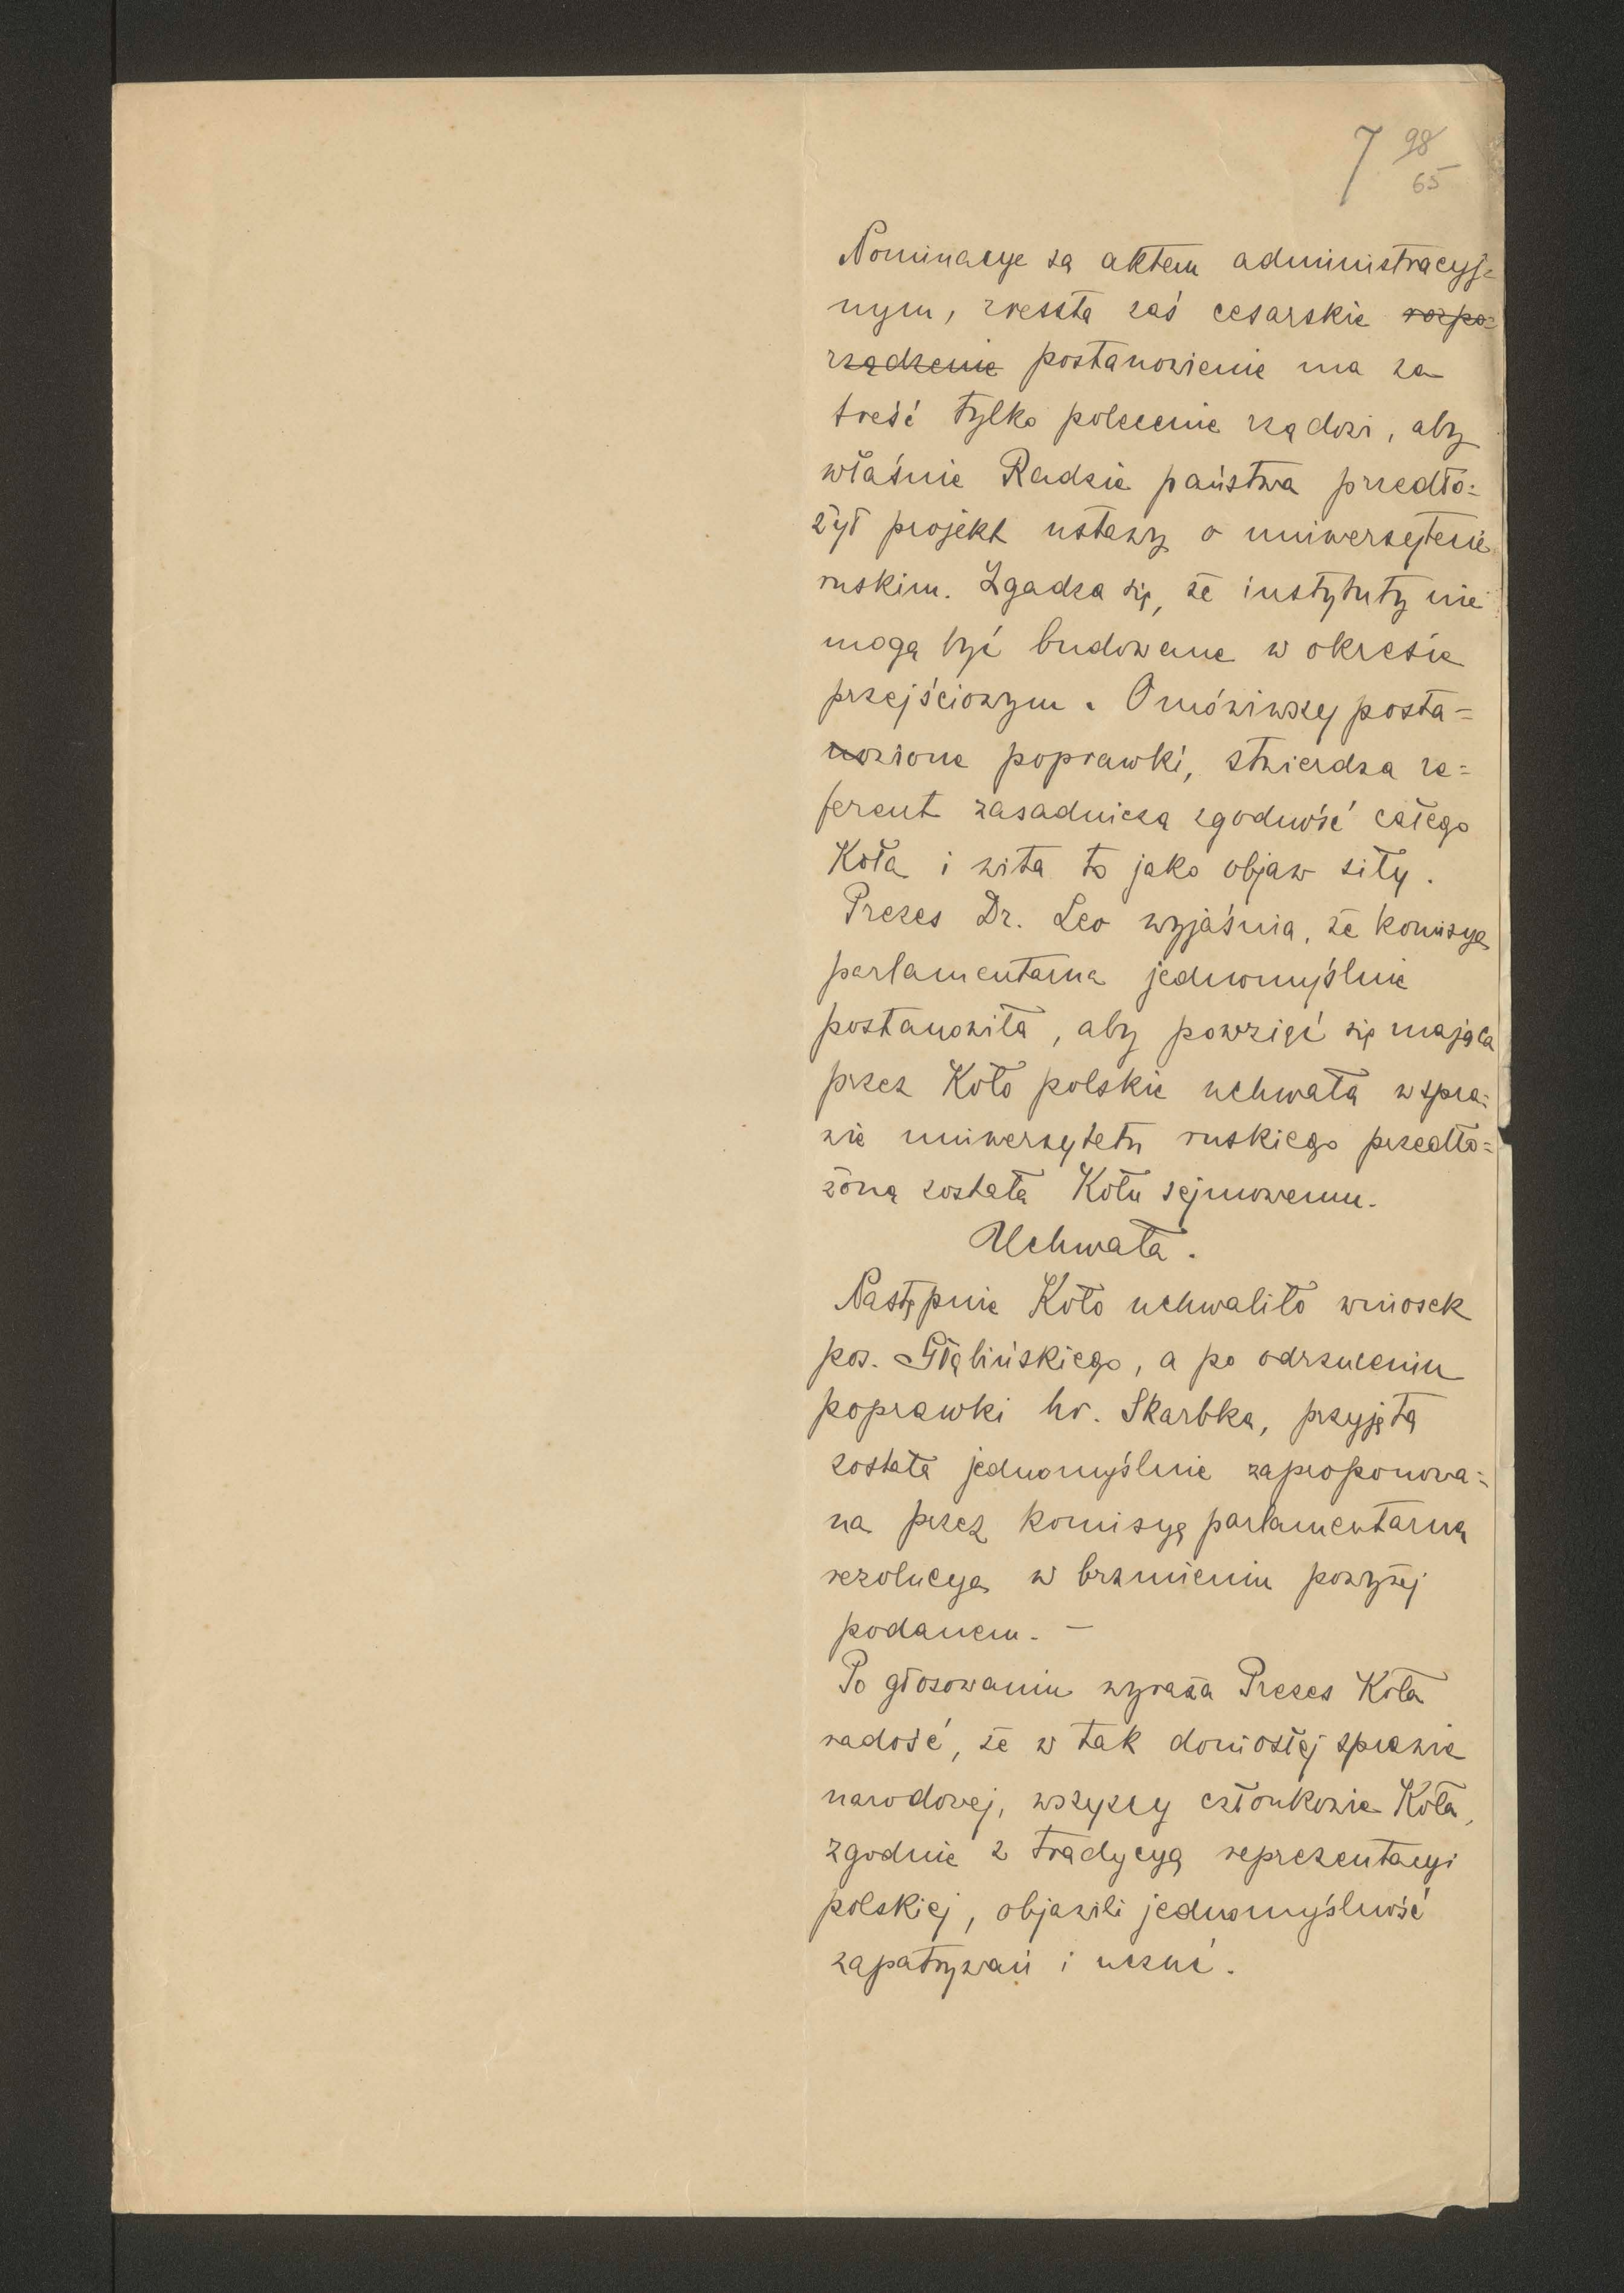 7 98
65
Nominacye są aktem administracyj=
nym, zresztą zaś cesarskie rozpo=
rządzenie postanowienie ma za
treść tylko polecenie rządowi, aby
właśnie Radzie państwa przedło=
żył projekt ustawy o uniwersytecie
ruskim. Zgadza się, że instytuty nie
mogą być budowane w okresie
przejściowym. Omówiwszy posta=
wione poprawki, stwierdza re=
ferent zasadniczą zgodność całego
Koła i wita to jako objaw siły.
Prezes Dr. Leo wyjaśnia, że komisya
parlamentarna jednomyślnie
postanowiła, aby powziąć się mająca
przez Koło polskie uchwała w spra=
wie uniwersytetu ruskiego przedło=
żoną została Kołu sejmowemu.
Uchwała.
Następnie Koło uchwaliło wniosek
pos. Głąbińskiego, a po odrzuceniu
poprawki hr. Skarbka, przyjętą
została jednomyślnie zaproponowa=
na przez komisyę parlamentarną
rezolucya w brzmieniu powyżej
podanem. —
Po głosowaniu wyraża Prezes Koła
radość, że w tak doniosłej sprawie
narodowej, wszyscy członkowie Koła,
zgodnie z tradycyą reprezentacyi
polskiej, objawili jednomyślność
zapatrywań i uczuć.